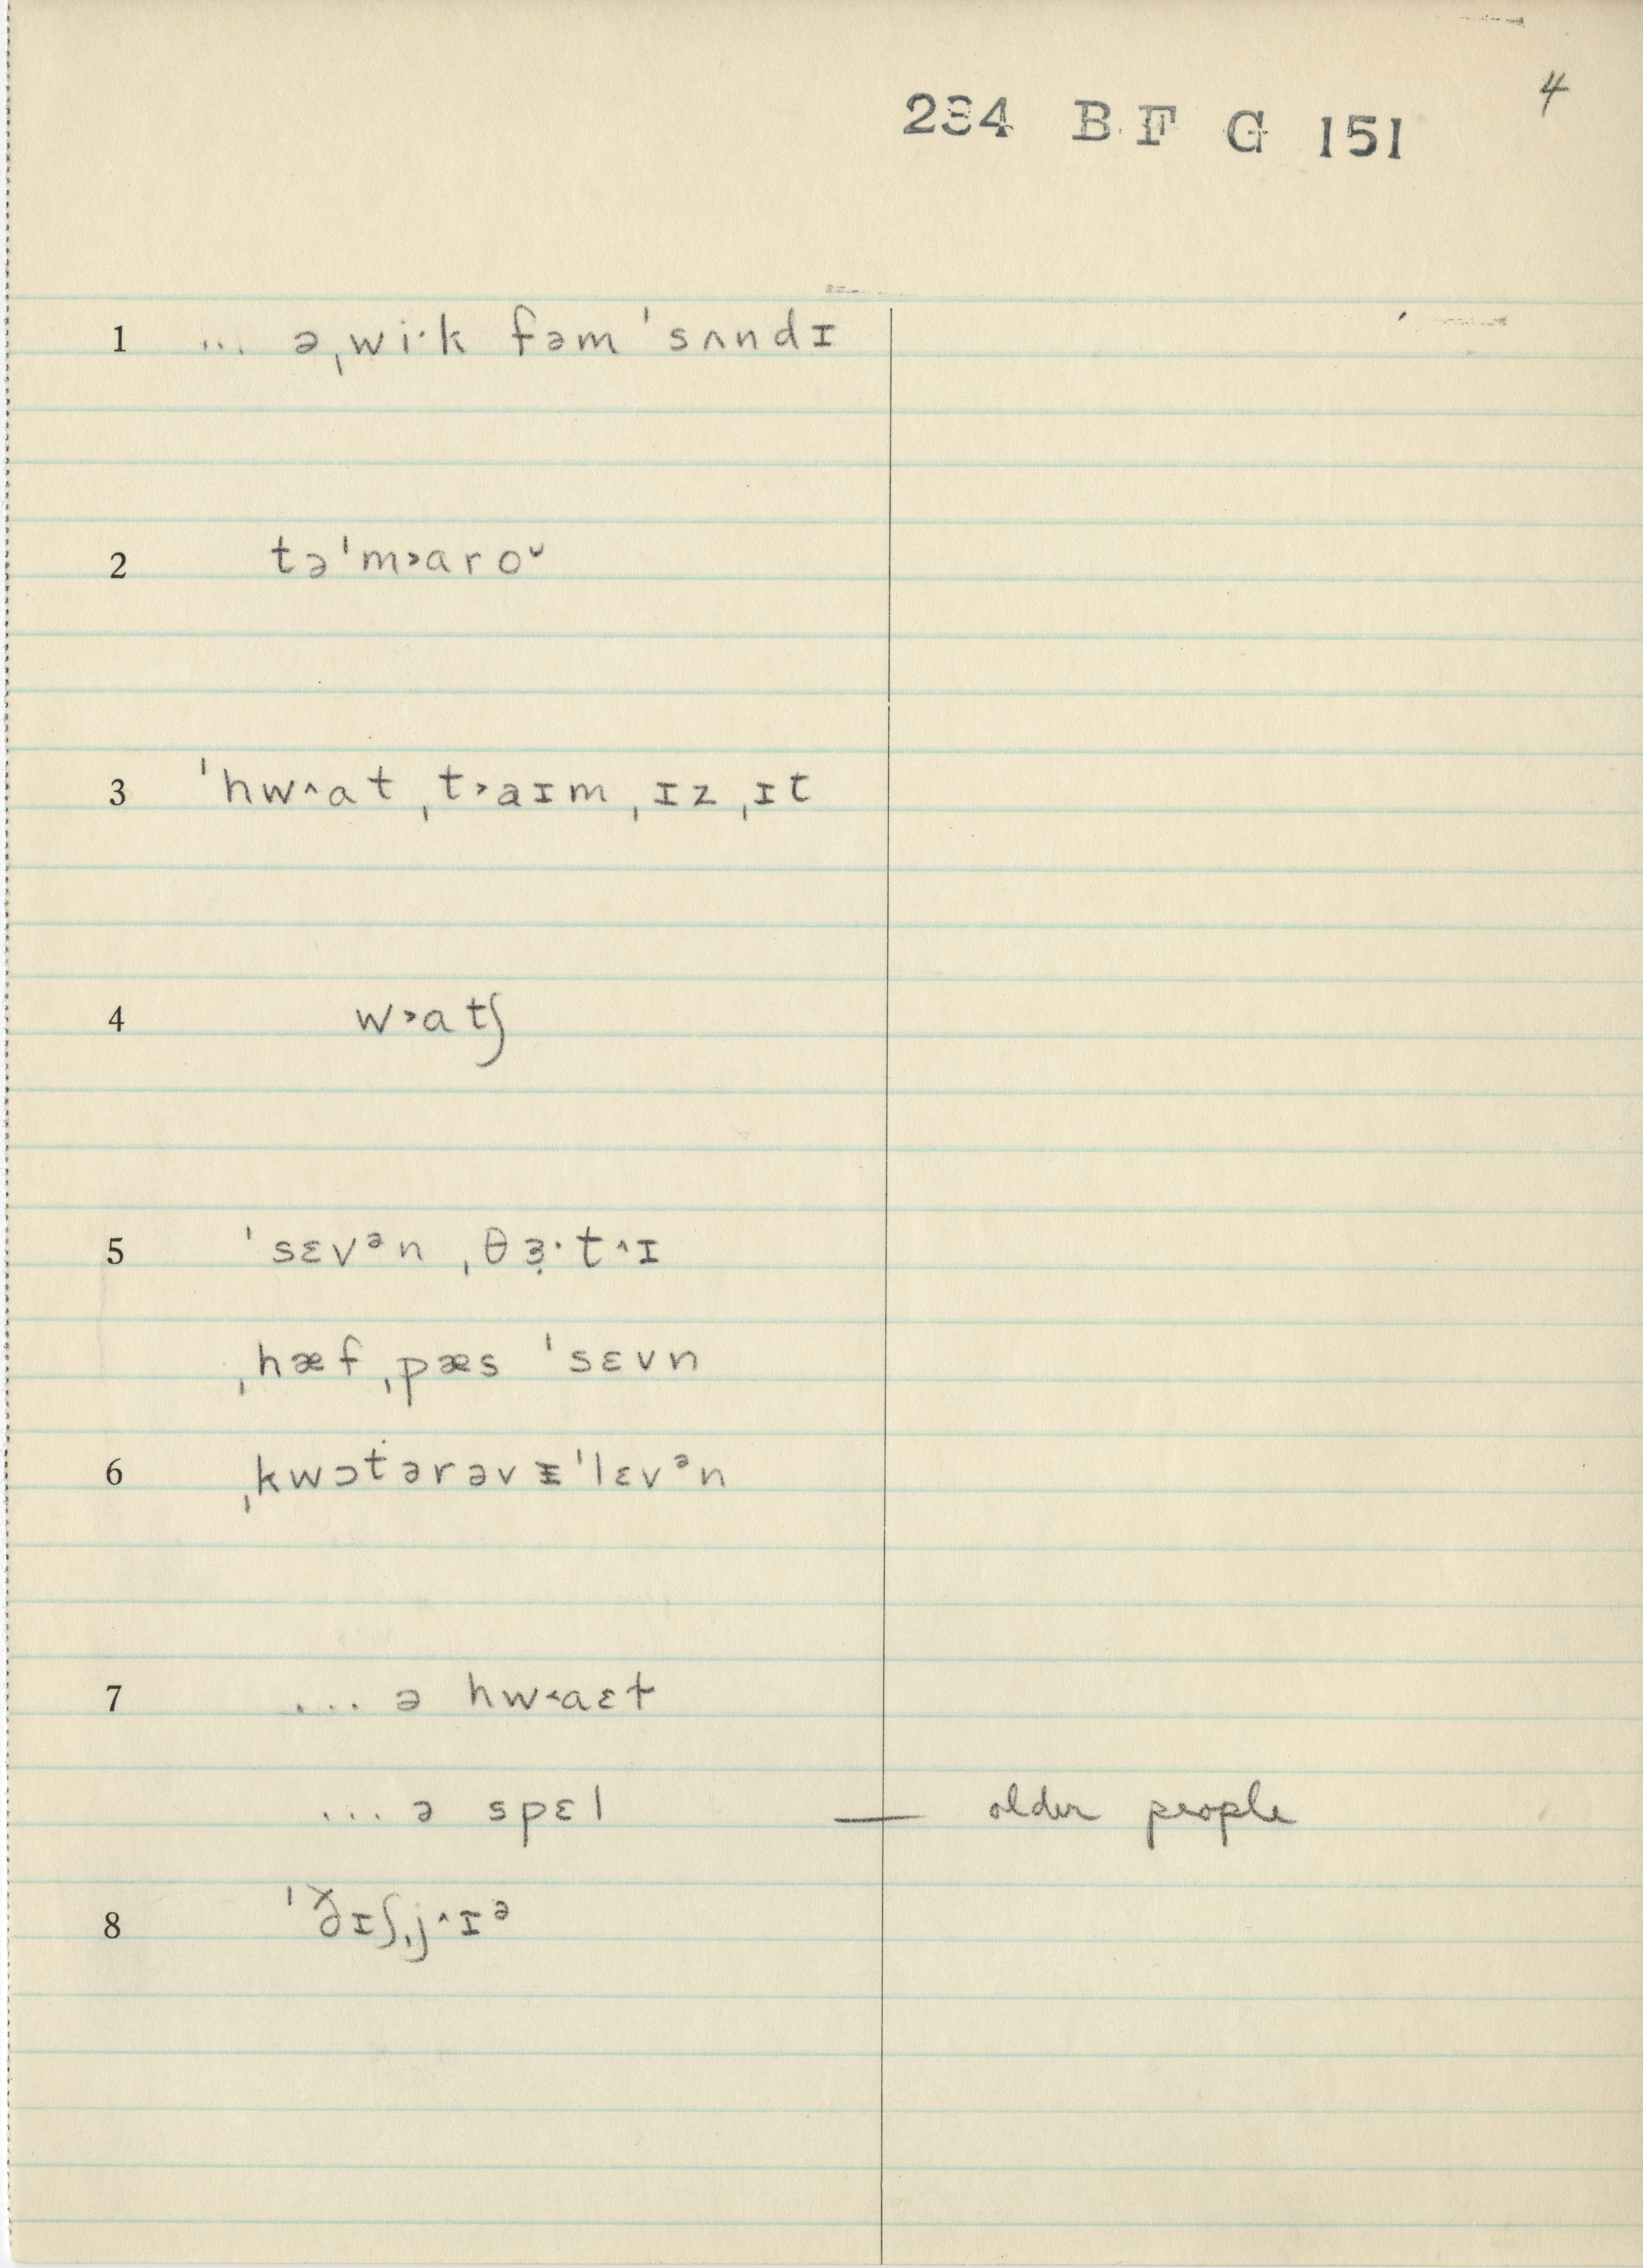 4
234 B F G 151
1 ... əˌwi·k fəm ˈsʌndɪ
2 təˈm˃aroᵕ
3 ˈhw^at ˌt˃aɪm ˌɪz ˌɪt
4 w˃atʃ
5 ˈsɛvᵊn ˌθɜ̣·t^ɪ
ˌhæf ˌpæs ˈsɛvn
6 ˌkwɔtərəvᵻˈlɛvᵊn
7 ... ə hw˂aɛt
... ə spɛl — older people
8 ˈðɪʃˌj^ɪᵊ